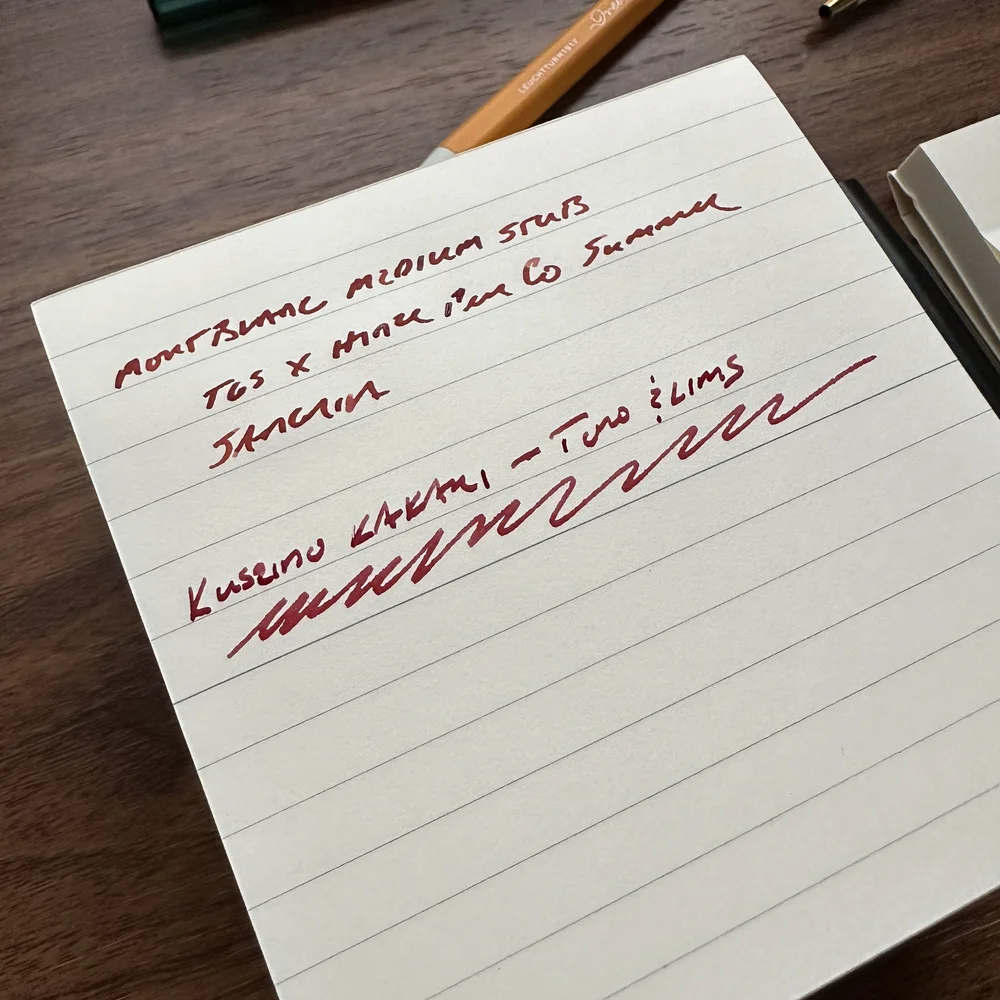 LEUCHTTURM1917
MONTBLANC MEDIUM STUB
TGS X Hinze Pen Co Summer
SANGRIA
KUSZIMO KAKAKI - TWO & LIMS